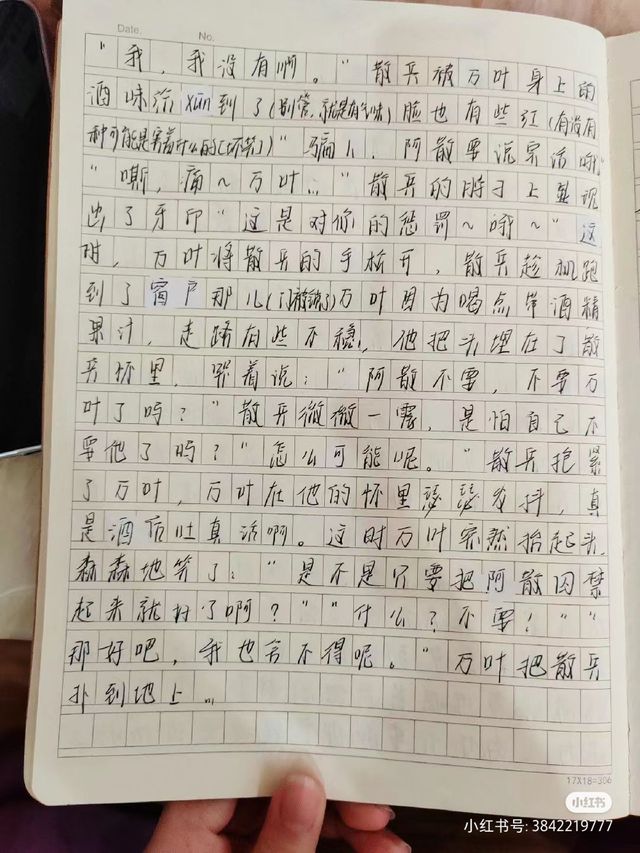 Date.
No.
"我，我没有啊。"散兵被万叶身上的
酒味给xūn到了(别管，就是有气味)脸也有些红(有没有
种可能是害羞什么的(坏笑))"骗人，阿散要说实话哦"
"嘶，痛~万叶…"散兵的脖子上显现
出了牙印"这是对你的惩罚~哦~"这
时，万叶将散兵的手松开，散兵趁机跑
到了窗户那儿(门被锁了)万叶因为喝点带酒精
果汁，走路有些不稳，他把头埋在了散
兵怀里，哭着说："阿散不要，不要万
叶了吗？"散兵微微一震，是怕自己不
要他了吗？"怎么可能呢。"散兵抱紧
了万叶，万叶在他的怀里瑟瑟发抖，真
是酒后吐真话啊。这时万叶突然抬起头，
森森地笑了："是不是只要把阿散囚禁
起来就好了啊？""什么？不要！""
那好吧，我也舍不得呢。"万叶把散兵
扑到地上…
17X18=306
小红书
小红书号: 3842219777